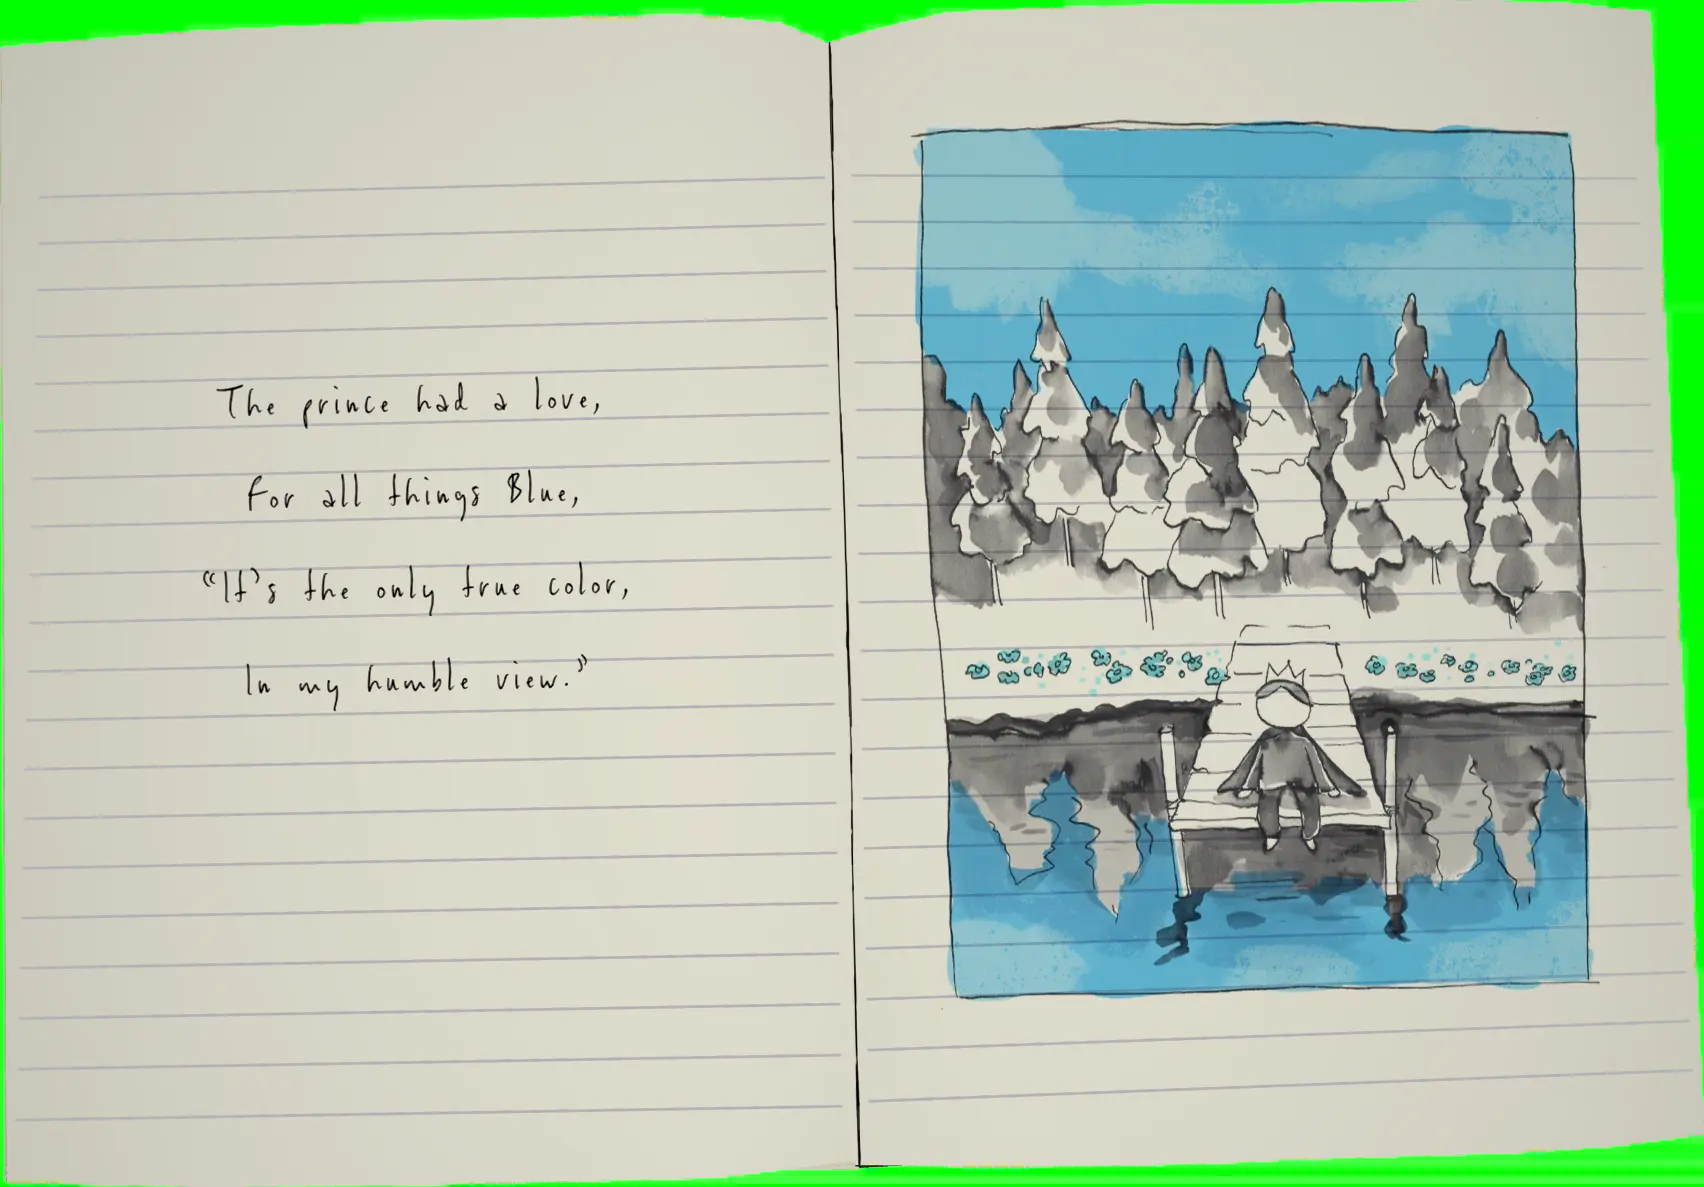 The prince had a love,
For all things Blue,
“It’s the only true color,
In my humble view.”